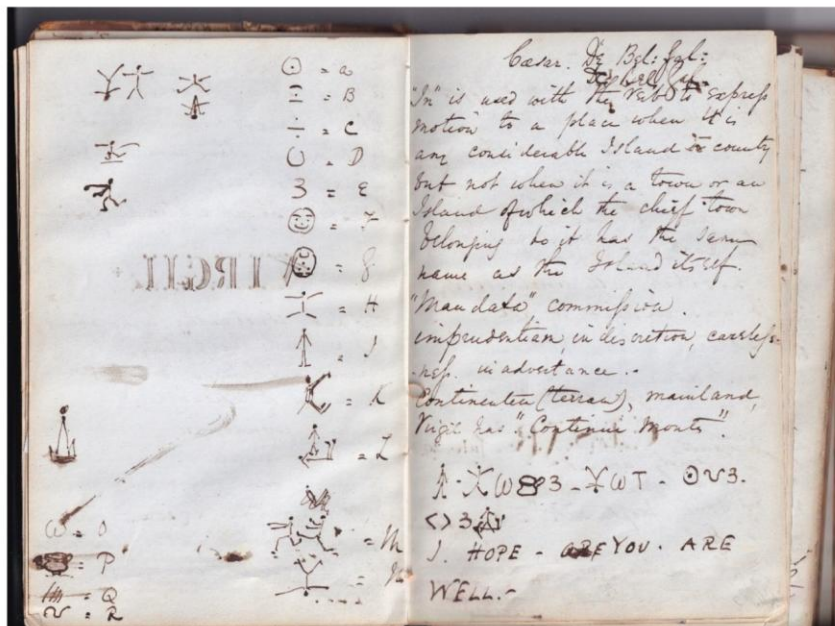 = a
= B
= C
= D
3 = E
= F
= g
= H
= J
= K
= L
= M
= n
ω = O
= P
= Q
= R
VIRGIL
Cæsar. De Bel: Gal:
"In" is used with the verb to express
motion to a place when it is
any considerable Island or county
but not when it is a town or an
Island of which the chief town
belonging to it has the same
name as the Island itself.
"Mandata" commission.
imprudentiam, indiscretion, careless-
ness. inadvertance.-
Continentem (terram), mainland,
Virgil has "Continui Montes".
J. HOPE - YOU. ARE
WELL.-